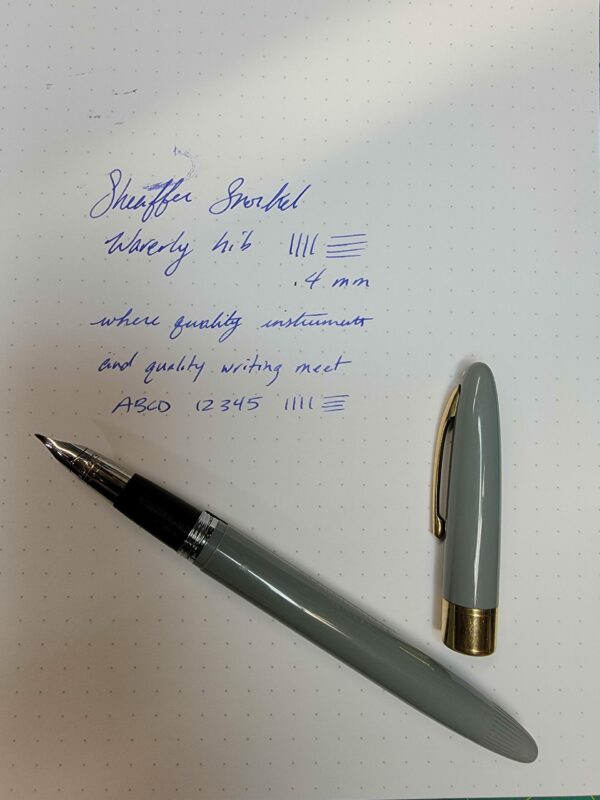 Sheaffer Snorkel
Waverly nib
.4 mm
where quality instruments
and quality writing meet
ABCD 12345